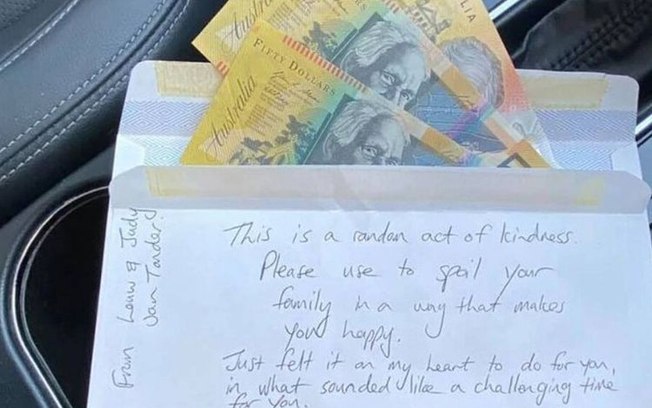 Australia
LIA
FIFTY DOLLARS
Australia
This is a randan act of kindness.
Please use to spoil your
family in a way that makes
you happy.
Just felt it on my heart to do for you,
in what sounded like a challenging time
for you.
From Louw & Judy
Van Tonder